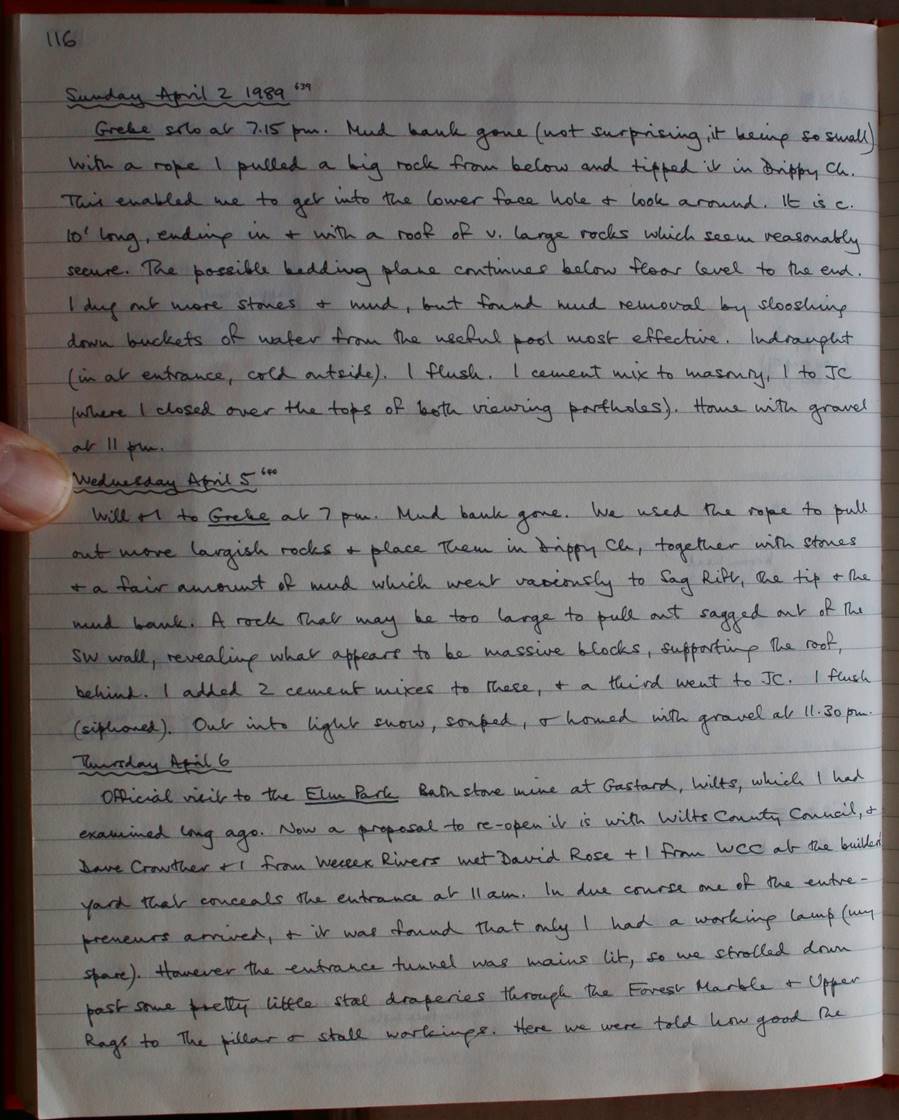 116
Sunday April 2 1989 639
Grebe solo at 7.15 pm. Mud bank gone (not surprising, it being so small)
With a rope I pulled a big rock from below and tipped it in Drippy Ch.
This enabled me to get into the lower face hole + look around. It is c.
10' long, ending in + with a roof of v. large rocks which seem reasonably
secure. The possible bedding plane continues below floor level to the end.
I dug out more stones + mud, but found mud removal by slooshing
down buckets of water from the useful pool most effective. Indraught
(in at entrance, cold outside). 1 flush. 1 cement mix to masonry, 1 to JC
(where I closed over the tops of both viewing portholes). Home with gravel
at 11 pm.
Wednesday April 5 640
Will +1 to Grebe at 7 pm. Mud bank gone. We used the rope to pull
out more largish rocks + place them in Drippy Ch, together with stones
+ a fair amount of mud which went variously to Sag Rift, the tip + the
mud bank. A rock that may be too large to pull out sagged out of the
SW wall, revealing what appears to be massive blocks, supporting the roof,
behind. I added 2 cement mixes to these, + a third went to JC. 1 flush
(siphoned). Out into light snow, souped, + homed with gravel at 11.30 pm.
Thursday April 6
Official visit to the Elm Park Bath stone mine at Gastard, Wilts, which I had
examined long ago. Now a proposal to re-open it is with Wilts County Council, +
Dave Crowther +1 from Wessex Rivers met David Rose +1 from WCC at the builders
yard that conceals the entrance at 11 am. In due course one of the entre-
preneurs arrived, + it was found that only I had a working lamp (my
spare). However the entrance tunnel was mains lit, so we strolled down
past some pretty little stal draperies through the Forest Marble + Upper
Rags to the pillar + stall workings. Here we were told how good the